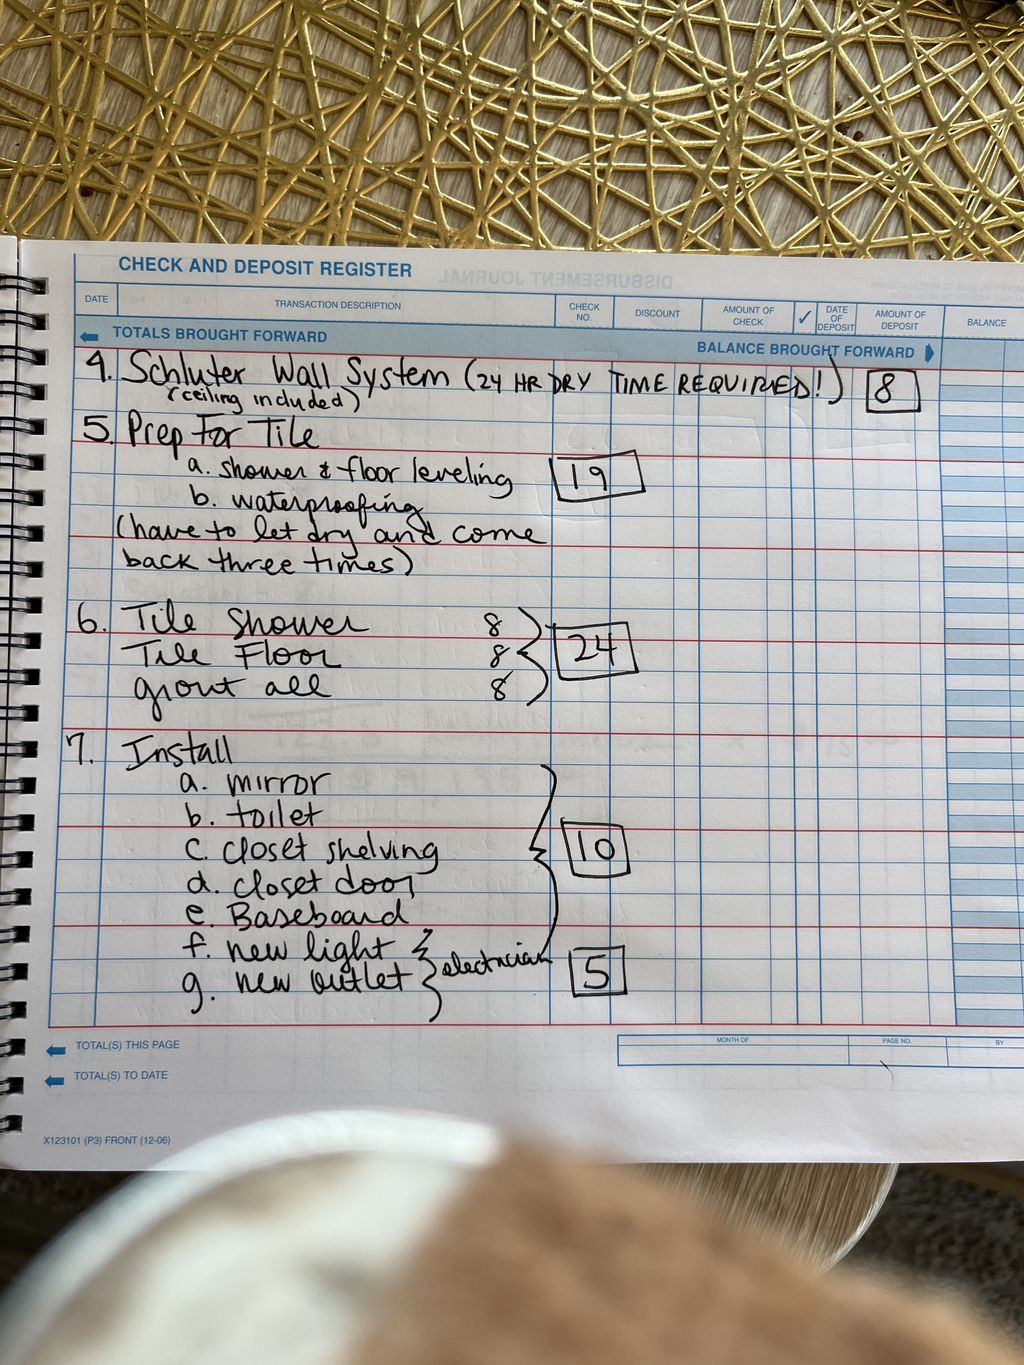 CHECK AND DEPOSIT REGISTER
DISBURSEMENT JOURNAL
DATE TRANSACTION DESCRIPTION CHECK NO. DISCOUNT AMOUNT OF CHECK ✓ DATE OF DEPOSIT AMOUNT OF DEPOSIT BALANCE
TOTALS BROUGHT FORWARD BALANCE BROUGHT FORWARD
4. Schluter Wall System (24 HR DRY TIME REQUIRED!) 8
(ceiling included)
5. Prep For Tile
a. shower & floor leveling 19
b. waterproofing
(have to let dry and come
back three times)
6. Tile Shower 8
Tile Floor 8 24
grout all 8
7. Install
a. mirror
b. toilet
c. closet shelving 10
d. closet door
e. Baseboard
f. new light
g. new outlet electrician 5
TOTAL(S) THIS PAGE MONTH OF PAGE NO. BY
TOTAL(S) TO DATE
X123101 (P3) FRONT (12-06)